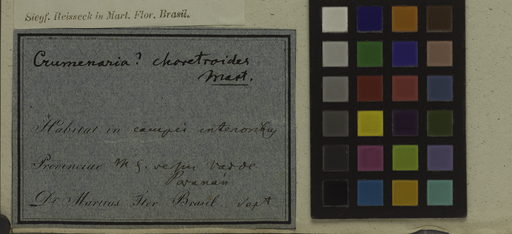 Siegf. Reisseck in Mart. Flor. Brasil.
Crumenaria? choretroides
Mart.
Habitat in campis interioribus
Provinciae M. G. versus
Paranán
Dr. Martius Iter Brasil. Sept